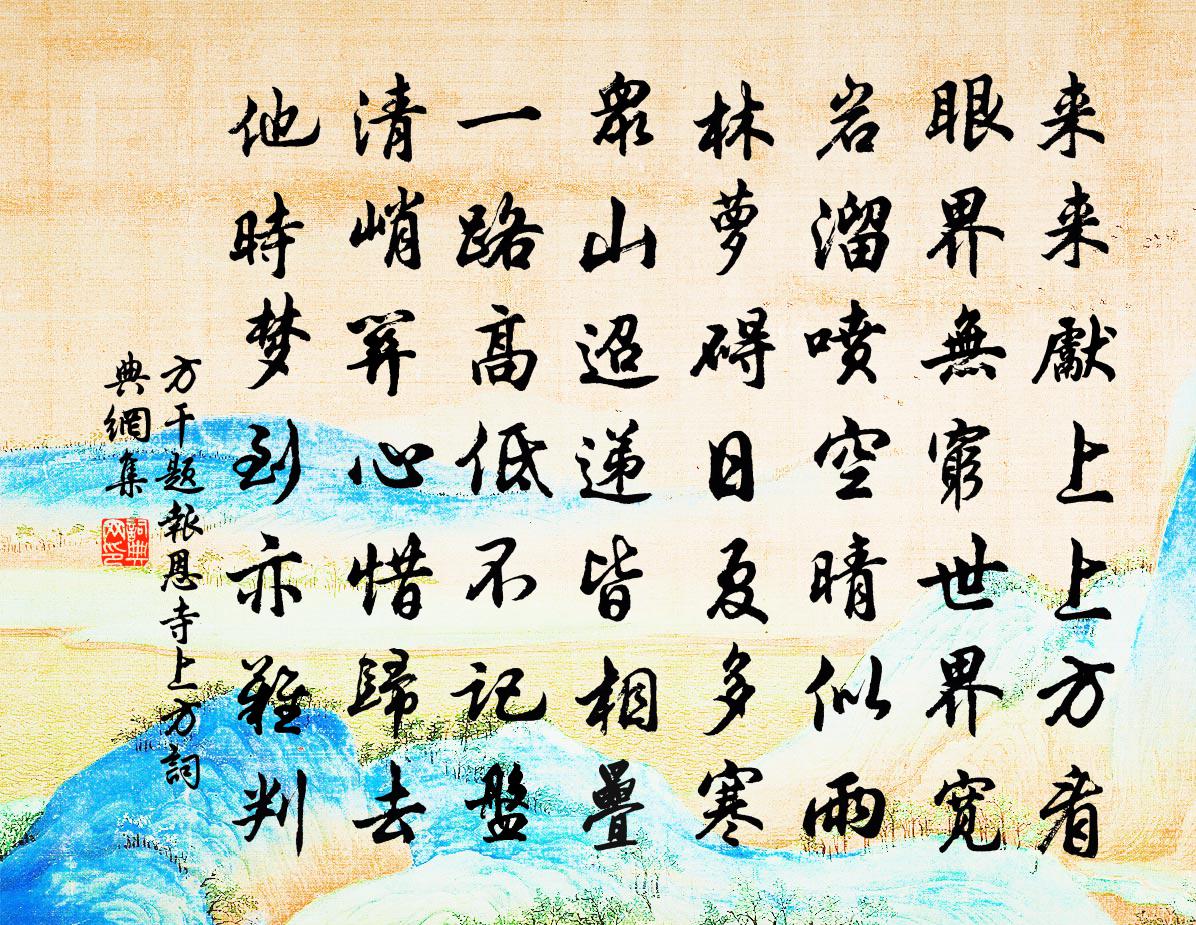 来来獻上上方看
眼界無窮世界宽
岩溜噴空晴似雨
林萝碍日夏多寒
衆山迢递皆相疊
一路高低不記盤
清峭關心惜歸去
他時梦到亦難判
方干题報恩寺上方詞
典網集
詞典
网印